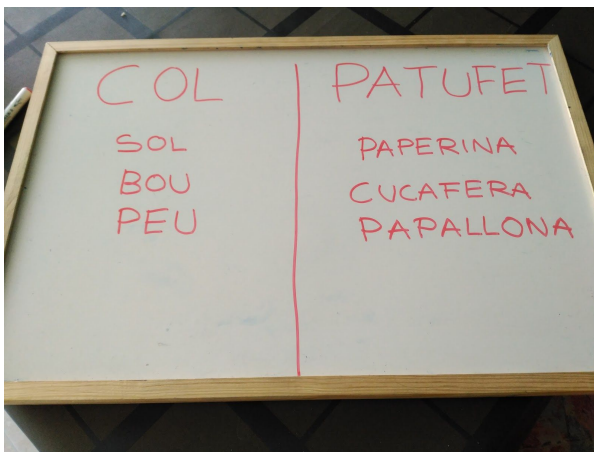 COL
SOL
BOU
PEU
PATUFET
PAPERINA
CUCAFERA
PAPALLONA